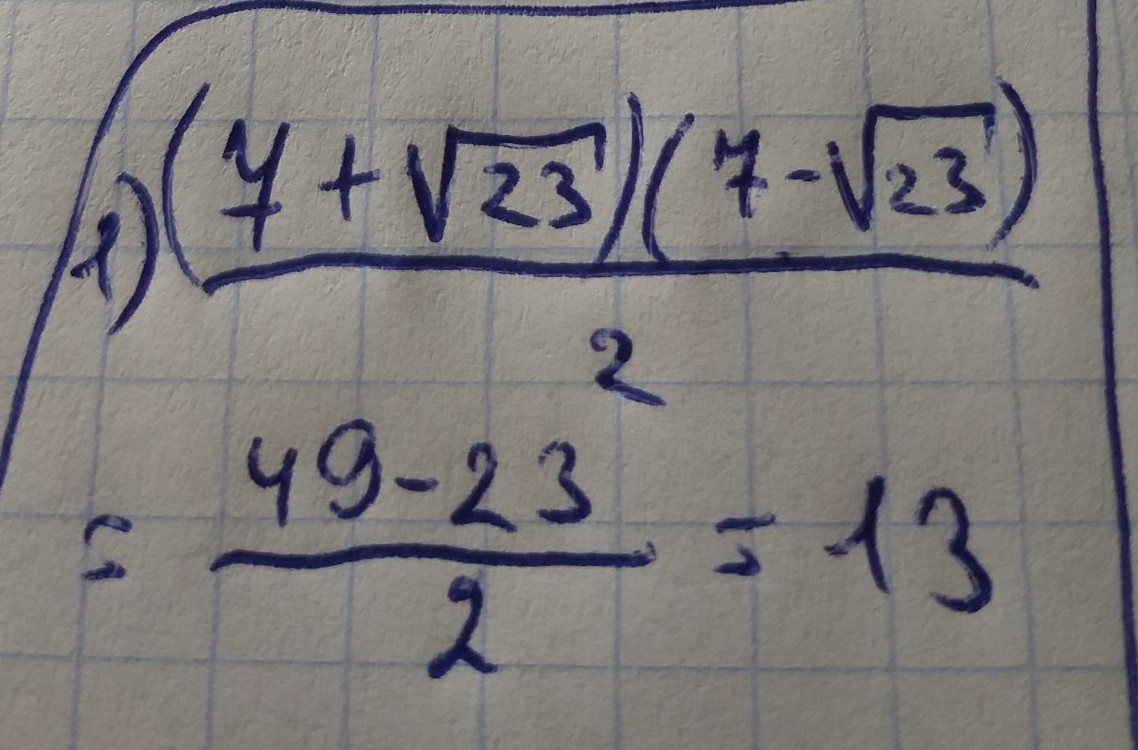 1) (7 + √23)(7 - √23)
2
= 49 - 23 = 13
2